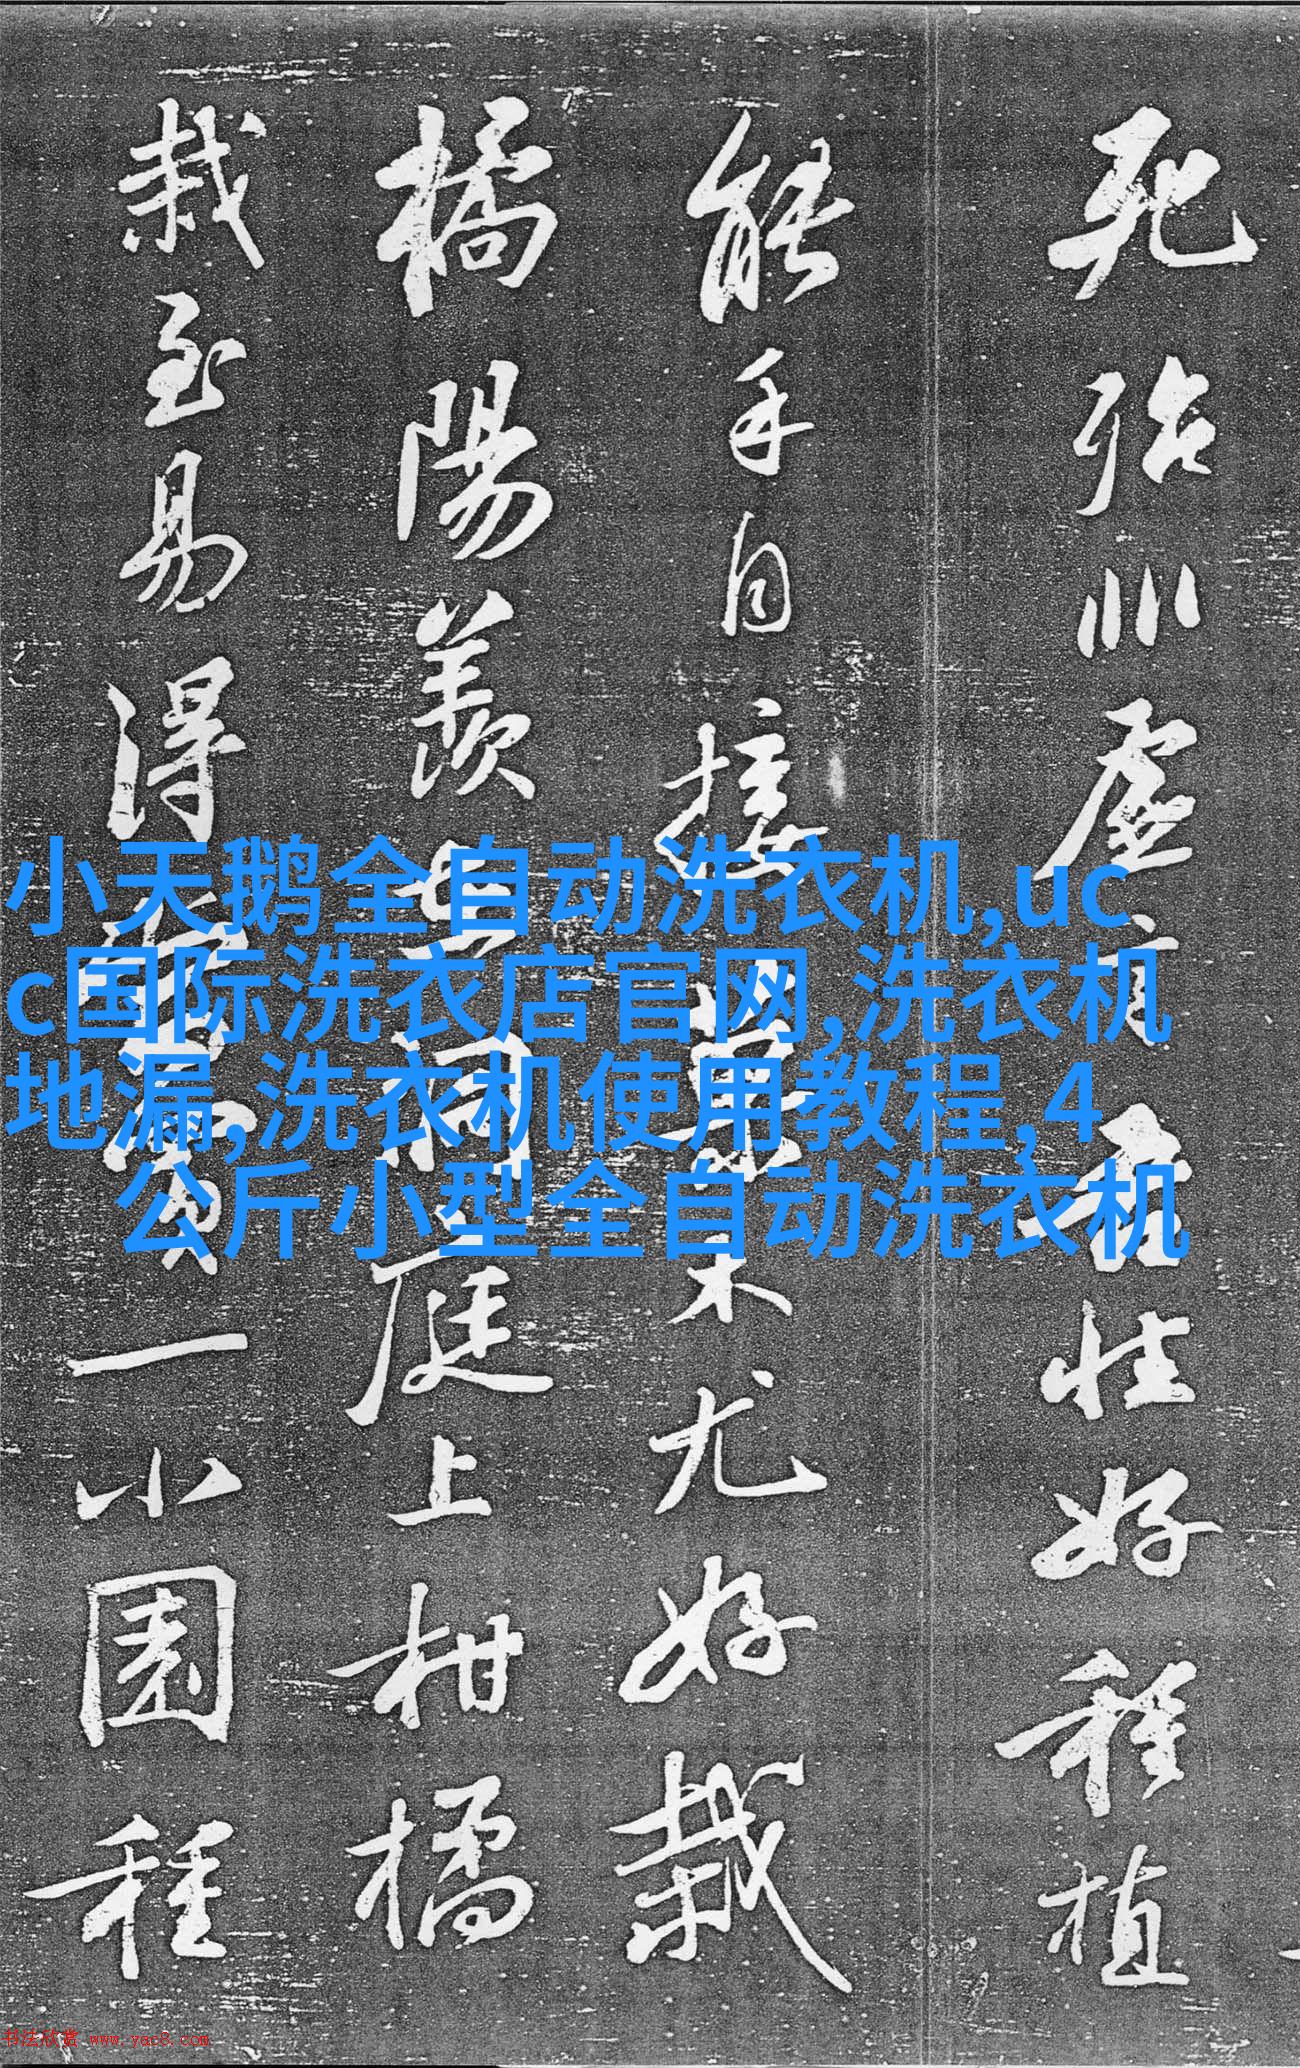 死殆非虛言吾性好種植
能手自接果木尤好栽
橘陽羨在洞庭上柑橘
栽至易得當買一小園種
小天鹅全自动洗衣机,uc
c国际洗衣店官网,洗衣机
地漏,洗衣机使用教程,4
公斤小型全自动洗衣机
书法欣赏 www.yac8.com